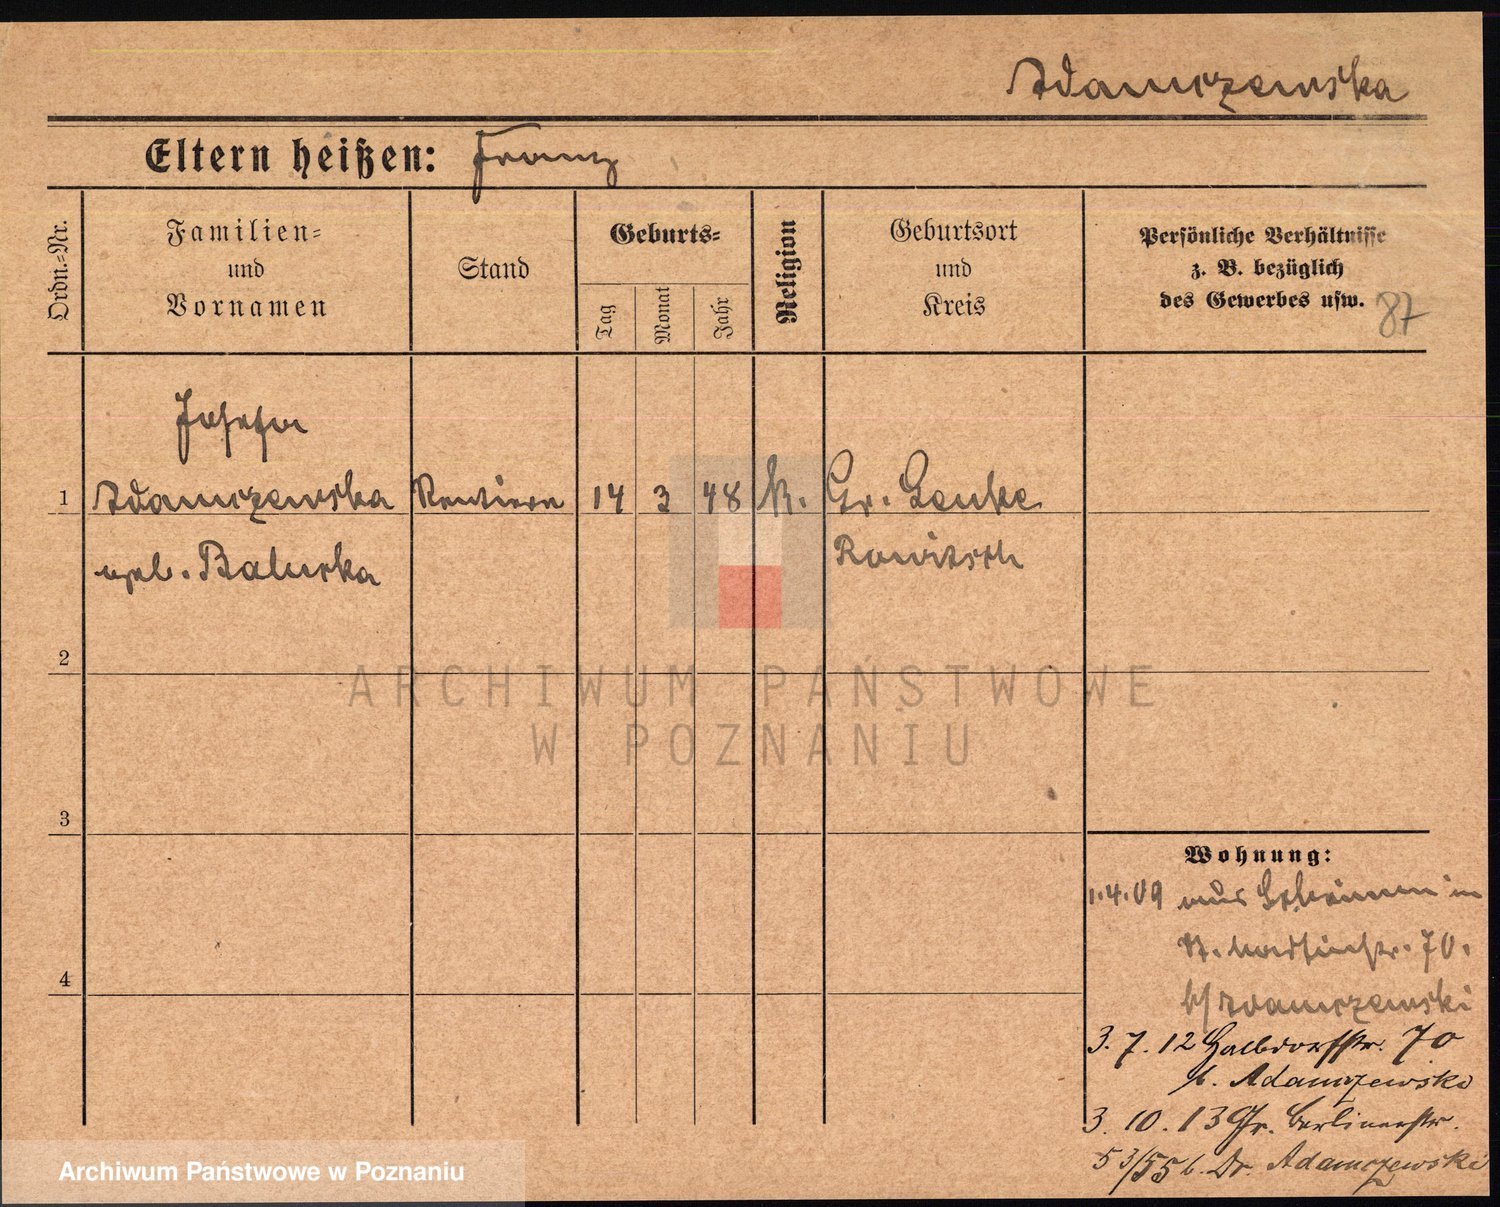 Adamczewska
Eltern heißen: Franz
Ordn.=Nr.
Familien=
und
Vornamen
Stand
Geburts=
Tag
Monat
Jahr
Religion
Geburtsort
und
Kreis
Persönliche Verhältnisse
z. B. bezüglich
des Gewerbes usw.
87
Josefa
1 Adamczewska Rentiere 14 3 48 k. Gr. Lenke
geb. Balurka Rawitsch
2
ARCHIWUM PAŃSTWOWE
W POZNANIU
3
Wohnung:
1.4.09 aus Schrimm in
St. Martinstr. 70.
b/ Adamczewski
4
3.7.12 Halbdorfstr. 70
b. Adamczewski
3.10.13 Gr. Berlinerstr.
53/55 b. Dr. Adamczewski
Archiwum Państwowe w Poznaniu